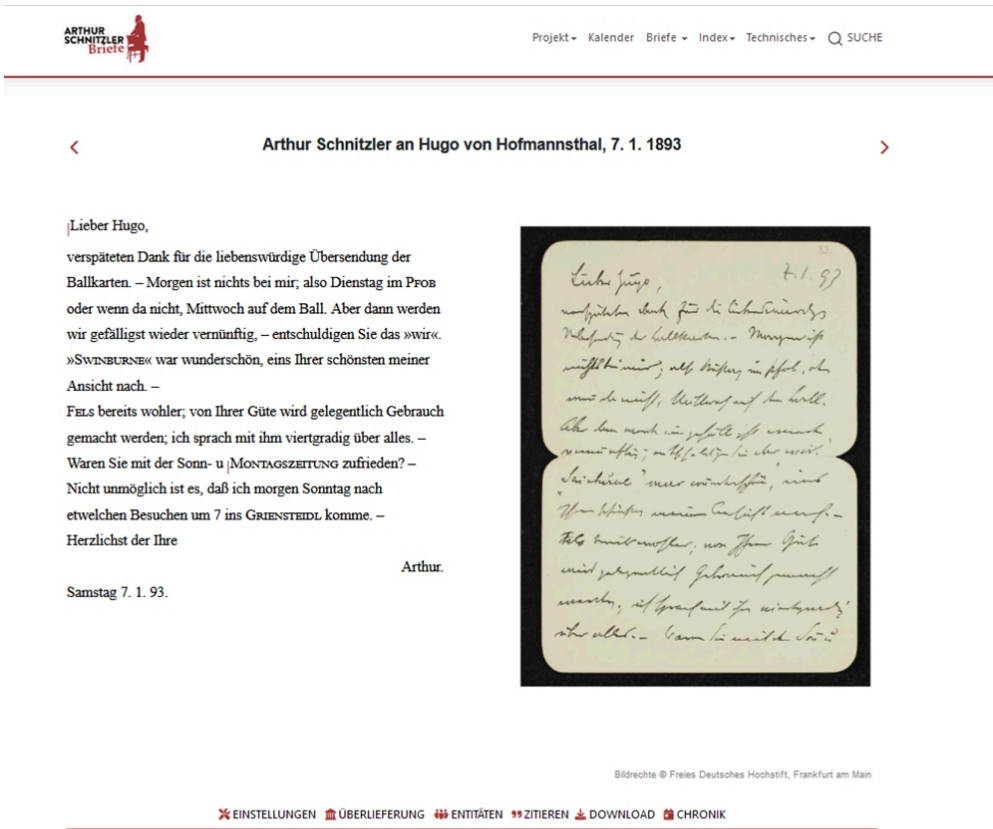 ARTHUR
SCHNITZLER
Briefe
Projekt Kalender Briefe Index Technisches SUCHE
Arthur Schnitzler an Hugo von Hofmannsthal, 7. 1. 1893
Lieber Hugo,
verspäteten Dank für die liebenswürdige Übersendung der
Ballkarten. – Morgen ist nichts bei mir; also Dienstag im PFOB
oder wenn da nicht, Mittwoch auf dem Ball. Aber dann werden
wir gefälligst wieder vernünftig, – entschuldigen Sie das »wir«.
»SWINBURNE« war wunderschön, eins Ihrer schönsten meiner
Ansicht nach. –
FELS bereits wohler; von Ihrer Güte wird gelegentlich Gebrauch
gemacht werden; ich sprach mit ihm viertgradig über alles. –
Waren Sie mit der Sonn- u |MONTAGSZEITUNG zufrieden? –
Nicht unmöglich ist es, daß ich morgen Sonntag nach
etwelchen Besuchen um 7 ins GRIENSTEIDL komme. –
Herzlichst der Ihre
Arthur.
Samstag 7. 1. 93.
32.
7. 1. 93
Lieber Hugo,
verspäteten Dank für die liebenswürdige
Übersendung der Ballkarten. – Morgen ist
nichts bei mir; also Dienstag im Pfob, oder
wenn da nicht, Mittwoch auf dem Ball.
Aber dann werden wir gefälligst wieder
vernünftig; entschuldigen Sie das wir.
"Swinburne" war wunderschön, eins
Ihrer schönsten meiner Ansicht nach. –
Fels bereits wohler; von Ihrer Güte
wird gelegentlich Gebrauch gemacht
werden; ich sprach mit ihm viertgradig
über alles. – Waren Sie mit der Sonn u
Bildrechte © Freies Deutsches Hochstift, Frankfurt am Main
EINSTELLUNGEN ÜBERLIEFERUNG ENTITÄTEN ZITIEREN DOWNLOAD CHRONIK